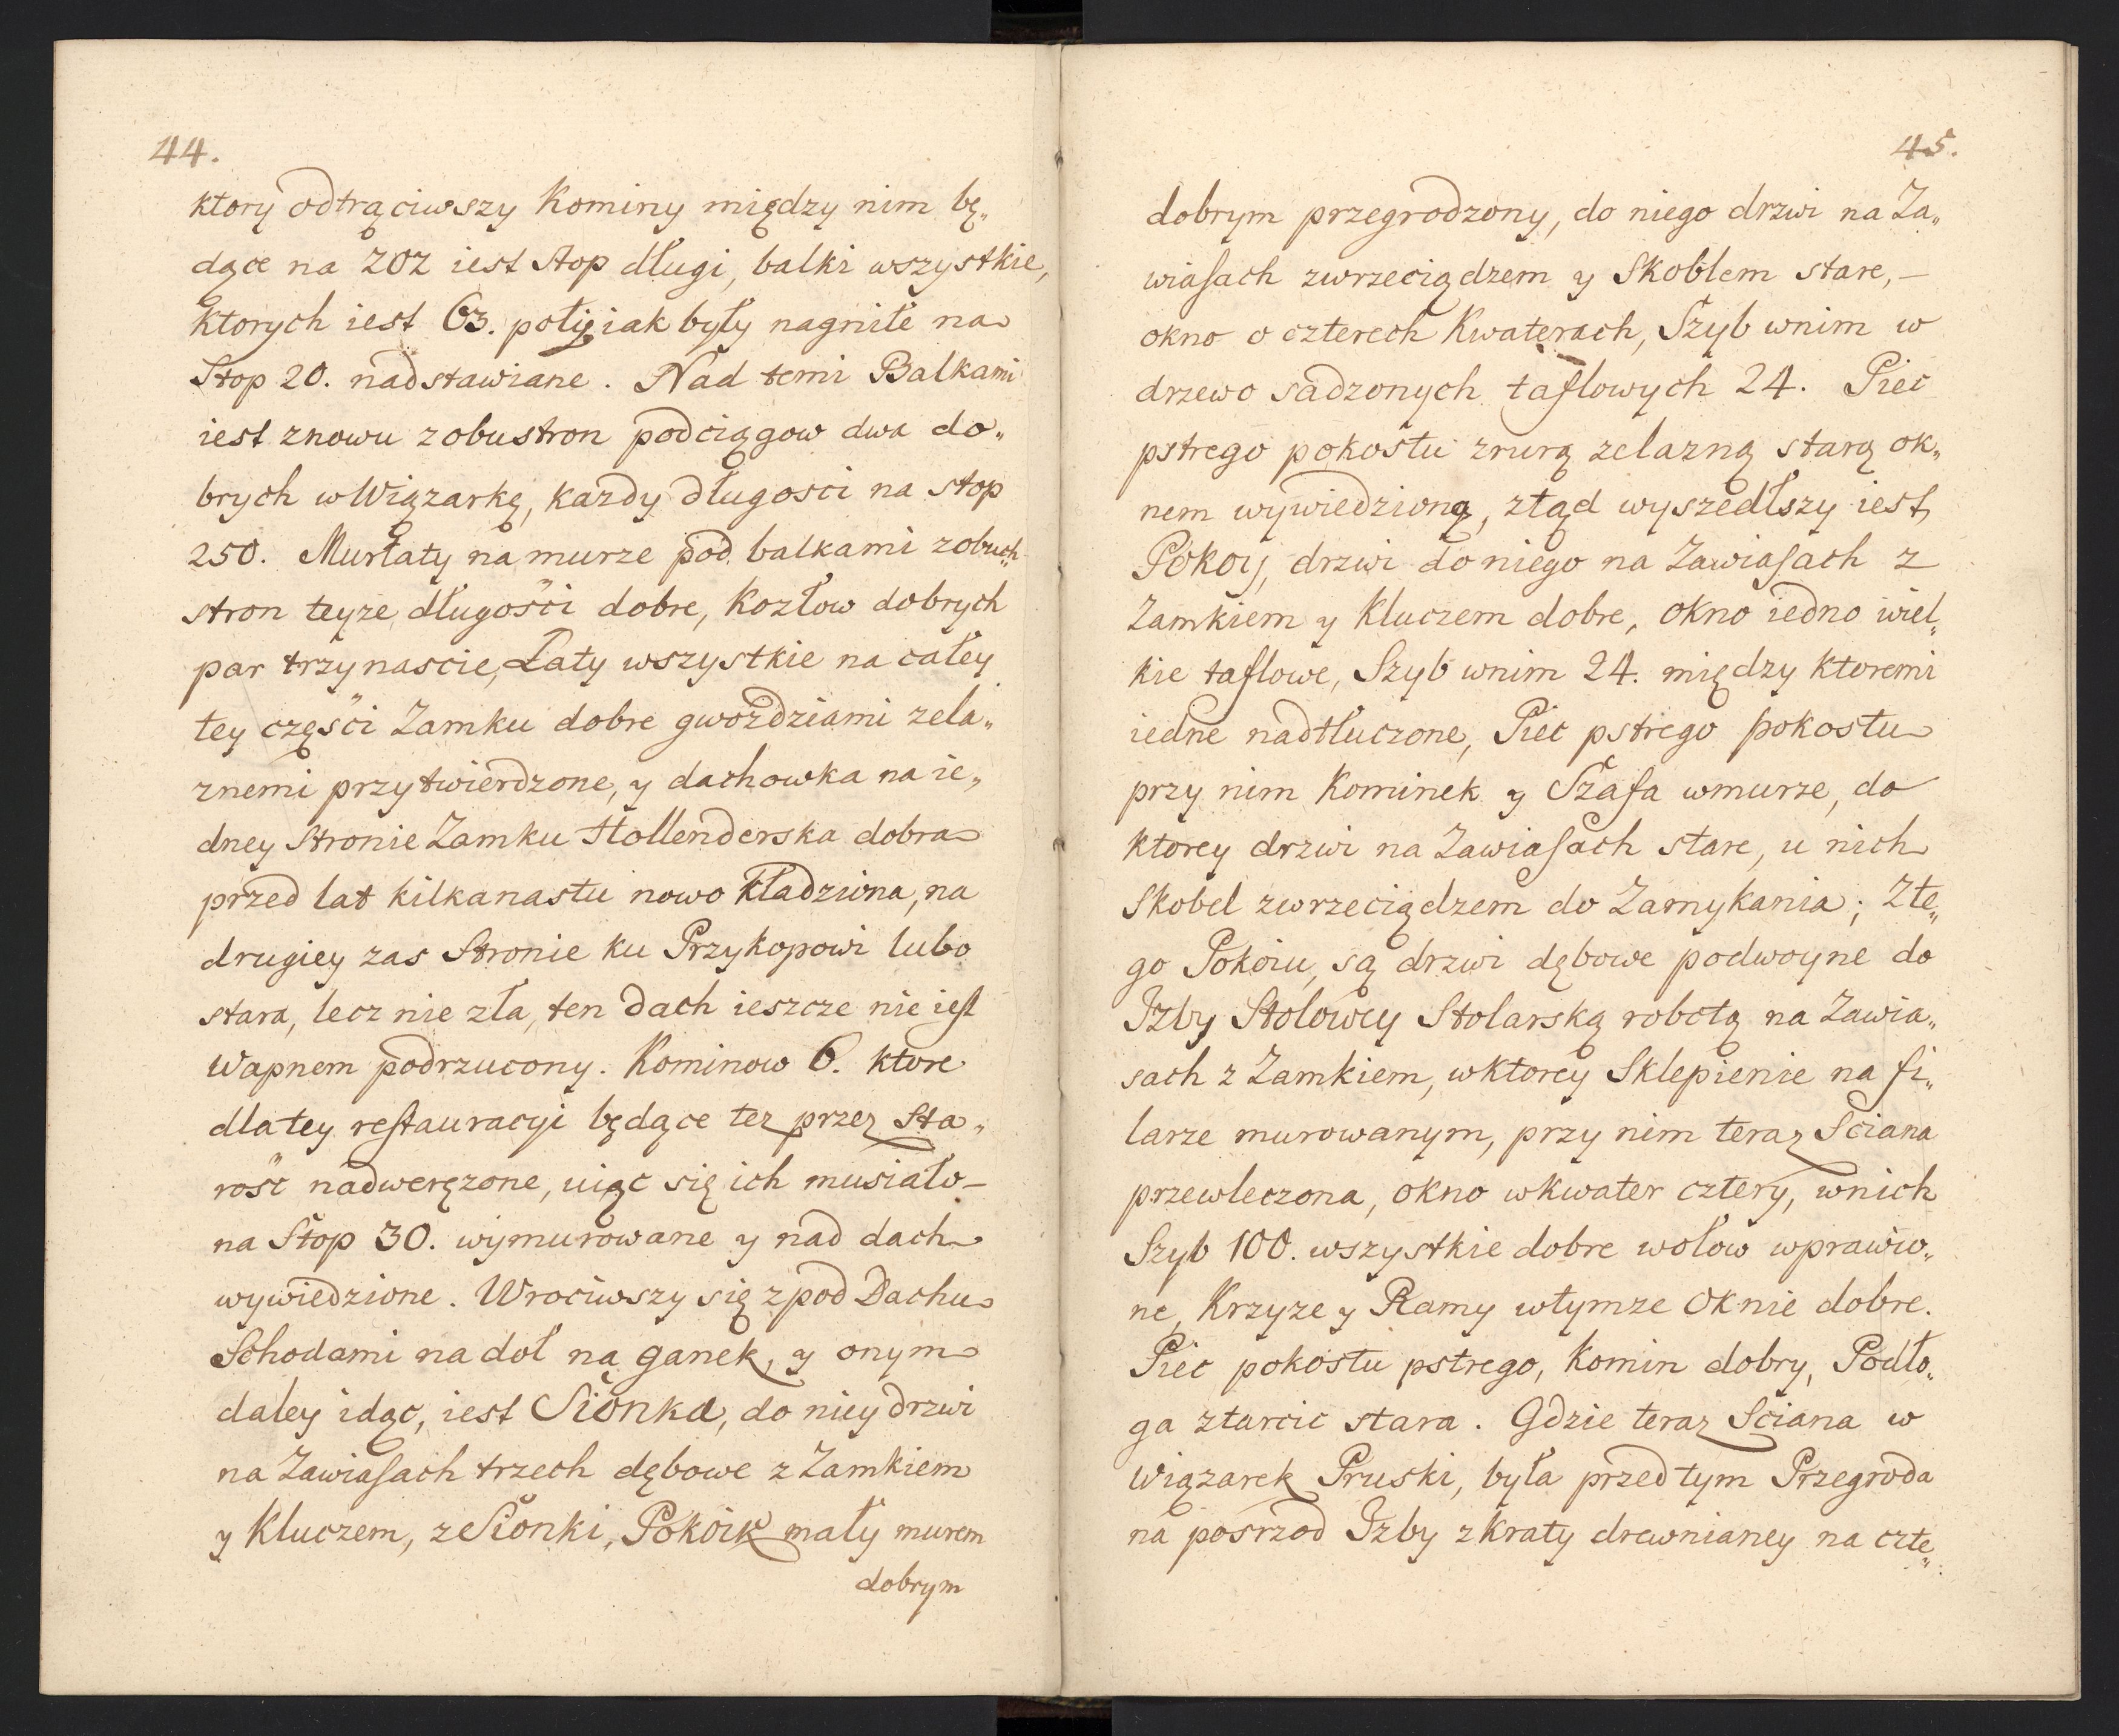 44.
ktory odtrąciwszy Kominy między nim bę„
dące na 202 iest stop długi, balki wszystkie,
ktorych iest 63. iak były nagniłe na
Stop 20. nadstawiane. Nad temi Balkami
iest znowu zobustron podciągow dwa do„
brych w Wiązarkę, kazdy długosci na stop
250. Murłaty na murze pod balkami zobuch
stron teyze długości dobre, Kozłow dobrych
par trzynascie, Łaty wszystkie na całey
tey części Zamku dobre gwoździami zela„
znemi przytwierdzone, y dachowka na ie„
dney Stronie Zamku Hollenderska dobra
przed lat kilkanastu nowo kładziona, na
drugiey zas Stronie ku Przykopowi lubo
stara, lecz nie zła, ten dach ieszcze nie iest
Wapnem podrzucony. Kominow 6. ktore
dla tey restauracyi będące tez przez sta„
rość nadweręzone, uiąc się ich musiało
na Stop 30. wymurowane y nad dach
wywiedzione. Wrociwszy się z pod Dachu
Schodami na doł na ganek, y onym
daley idąc, iest Sionka, do niey drzwi
na Zawiasach trzech dębowe z Zamkiem
y Kluczem, z Sionki, Pokoik mały murem
dobrym
45.
dobrym przegrodzony, do niego drzwi na Za„
wiasach zwrzeciądzem y Skoblem stare,–
okno o czterech Kwaterach, Szyb wnim w
drzewo sadzonych taflowych 24. Piec
pstrego pokostu zrurą zelazną starą ok„
nem wywiedzioną, ztąd wyszedłszy iest
Pokoy, drzwi do niego na Zawiasach z
Zamkiem y Kluczem dobre, okno iedno wiel„
kie taflowe, Szyb wnim 24. między ktoremi
iedne nadtłuczone, Piec pstrego pokostu
przy nim Kominek y Szafa wmurze, do
ktorey drzwi na Zawiasach stare, u nich
Skobel zwrzeciądzem do Zamykania; Zte„
go Pokoiu, są drzwi dębowe podwoyne do
Izby Stolowey Stolarską robotą na Zawia„
sach z Zamkiem, wktorey Sklepienie na fi„
larze murowanym, przy nim teraz Sciana
przewleczona, okno wkwater cztery, wnich
Szyb 100. wszystkie dobre wołow wprawio„
ne, Krzyze y Ramy wtymze Oknie dobre.
Piec pokostu pstrego, Komin dobry, Podło„
ga ztarcic stara. Gdzie teraz Sciana w
Wiązarek Pruski, była przed tym Przegroda
na posrzod Izby zkraty drewnianey na czte„